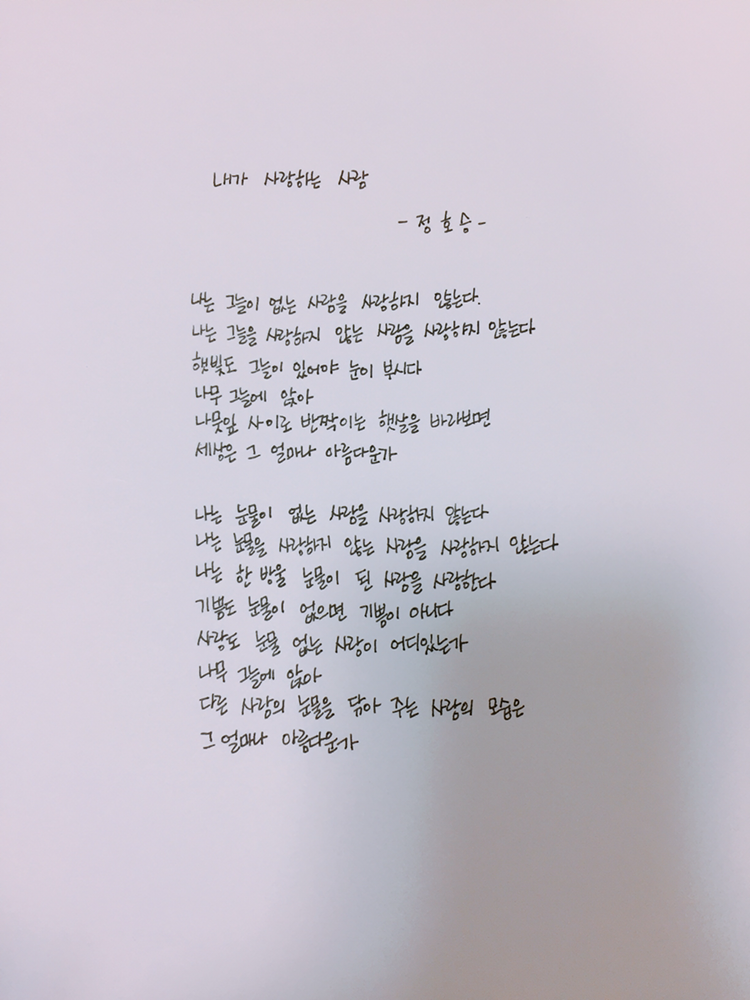 내가 사랑하는 사람
- 정호승 -
나는 그늘이 없는 사람을 사랑하지 않는다.
나는 그늘을 사랑하지 않는 사람을 사랑하지 않는다
햇빛도 그늘이 있어야 눈이 부시다
나무 그늘에 앉아
나뭇잎 사이로 반짝이는 햇살을 바라보면
세상은 그 얼마나 아름다운가
나는 눈물이 없는 사람을 사랑하지 않는다
나는 눈물을 사랑하지 않는 사람을 사랑하지 않는다
나는 한 방울 눈물이 된 사람을 사랑한다
기쁨도 눈물이 없으면 기쁨이 아니다
사랑도 눈물 없는 사랑이 어디있는가
나무 그늘에 앉아
다른 사람의 눈물을 닦아 주는 사람의 모습은
그 얼마나 아름다운가